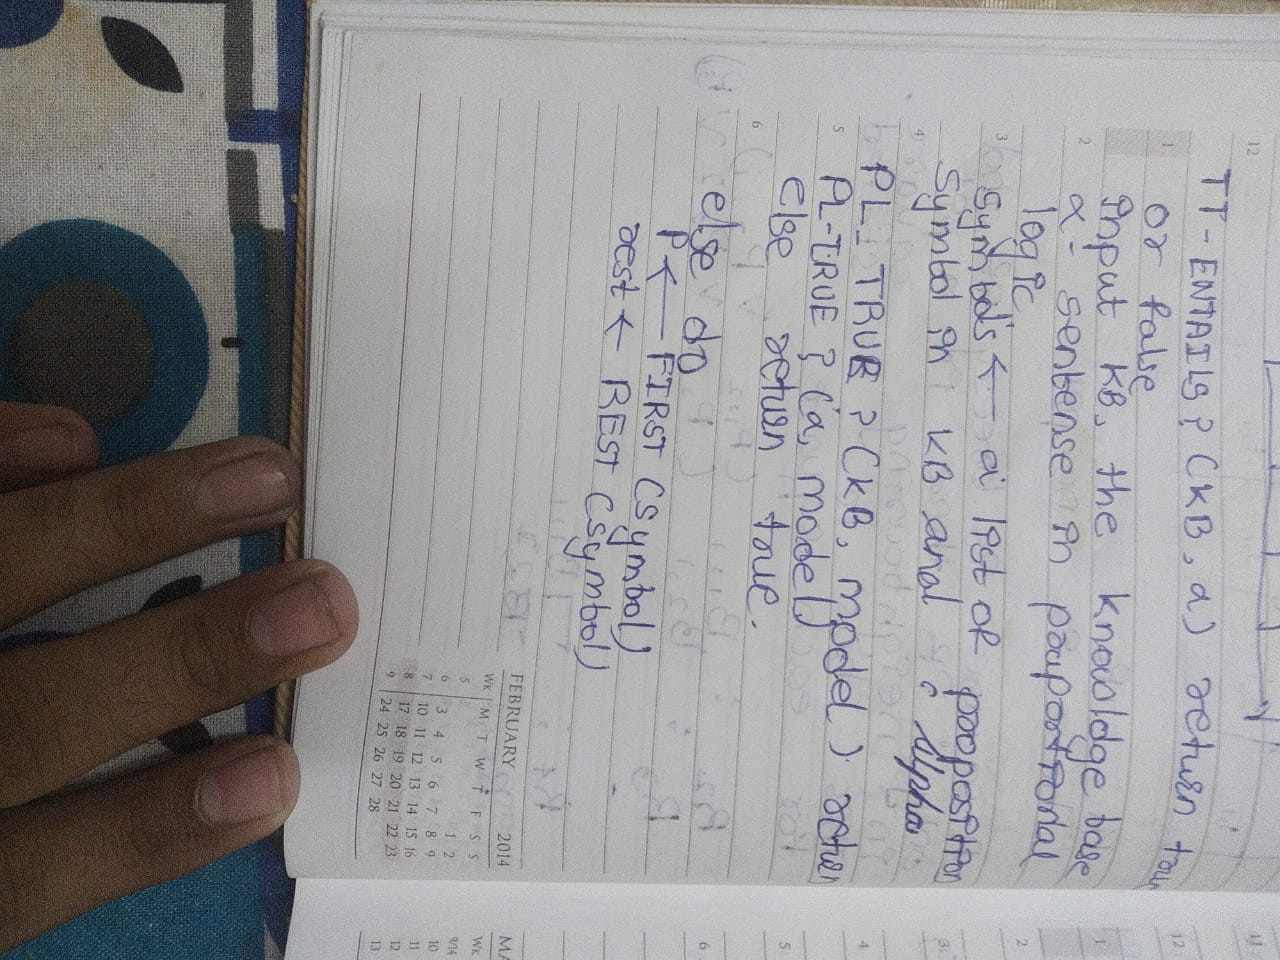 12
TT-ENTAILS? (KB, α) return true
1
or false
input KB, the knowoldge base
2
α - sentense in proportional
logic.
3
symbols ← a list of proposition
Symbol in KB and & Alpha
4
PL_TRUE? (KB, model) return
5
PL-TRUE? (α, model)
else return true.
6
else do
P ← FIRST (Symbol)
rest ← REST (symbol)
FEBRUARY 2014
WK M T W T F S S
5 1 2
6 3 4 5 6 7 8 9
7 10 11 12 13 14 15 16
8 17 18 19 20 21 22 23
9 24 25 26 27 28
11
12
1
2
3
4
5
6
MA
WK
9/14
10
11
12
13